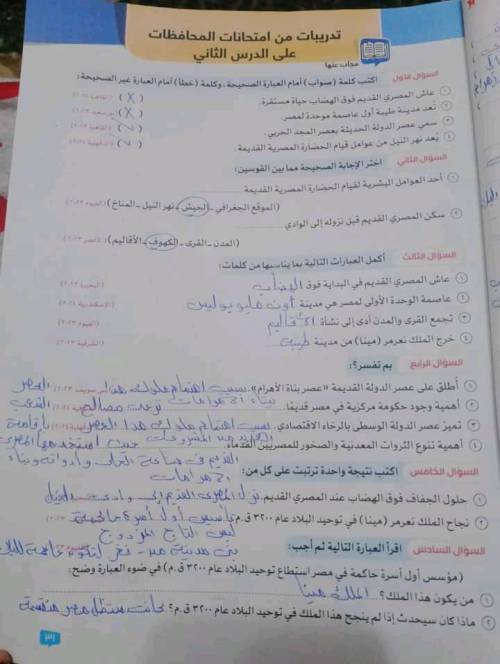 تدريبات من امتحانات المحافظات
على الدرس الثاني
مجاب عنها
السؤال الأول اكتب كلمة (صواب) أمام العبارة الصحيحة، وكلمة (خطأ) أمام العبارة غير الصحيحة:
١ عاش المصري القديم فوق الهضاب حياة مستقرة. (X)
٢ تُعد مدينة طيبة أول عاصمة موحدة لمصر. (X)
٣ سمي عصر الدولة الحديثة بعصر المجد الحربي. (✓)
٤ يُعد نهر النيل من عوامل قيام الحضارة المصرية القديمة. (✓)
السؤال الثاني اختر الإجابة الصحيحة مما بين القوسين:
١ أحد العوامل البشرية لقيام الحضارة المصرية القديمة
(الموقع الجغرافي - الجيش - نهر النيل - المناخ) (الفيوم ٢٠٢٣)
٢ سكن المصري القديم قبل نزوله إلى الوادي
(المدن - القرى - الكهوف - الأقاليم)
السؤال الثالث أكمل العبارات التالية بما يناسبها من كلمات:
١ عاش المصري القديم في البداية فوق الهضاب
٢ عاصمة الوحدة الأولى لمصر هي مدينة أون هليوبوليس
٣ تجمع القرى والمدن أدى إلى نشأة الأقاليم
٤ خرج الملك نعرمر (مينا) من مدينة طيبة
السؤال الرابع بم تفسر؟:
١ أطلق على عصر الدولة القديمة «عصر بناة الأهرام». بسبب اهتمام ملوك هذا العصر
ببناء الأهرامات
٢ أهمية وجود حكومة مركزية في مصر قديمًا. مصالح الشعب
٣ تميز عصر الدولة الوسطى بالرخاء الاقتصادي. بسبب اهتمام ملوك هذا العصر بإقامة
المشروعات
٤ أهمية تنوع الثروات المعدنية والصخور للمصريين القدماء. حيث استخدمها المصري
القديم في صناعة وأدواته وبناء
الأهرامات
السؤال الخامس اكتب نتيجة واحدة ترتبت على كل من:
١ حلول الجفاف فوق الهضاب عند المصري القديم نزل المصري القديم إلى وادي النيل
٢ نجاح الملك نعرمر (مينا) في توحيد البلاد عام ٣٢٠٠ ق.م تأسيس أول أسرة حاكمة
لبس التاج المزدوج
السؤال السادس اقرأ العبارة التالية ثم أجب:
بنى مدينة
(مؤسس أول أسرة حاكمة في مصر استطاع توحيد البلاد عام ٣٢٠٠ ق.م) في ضوء العبارة وضح:
١ من يكون هذا الملك؟ الملك مينا
٢ ماذا كان سيحدث إذا لم ينجح هذا الملك في توحيد البلاد عام ٣٢٠٠ ق.م؟ كانت ستظل مصر منقسمة
٣١